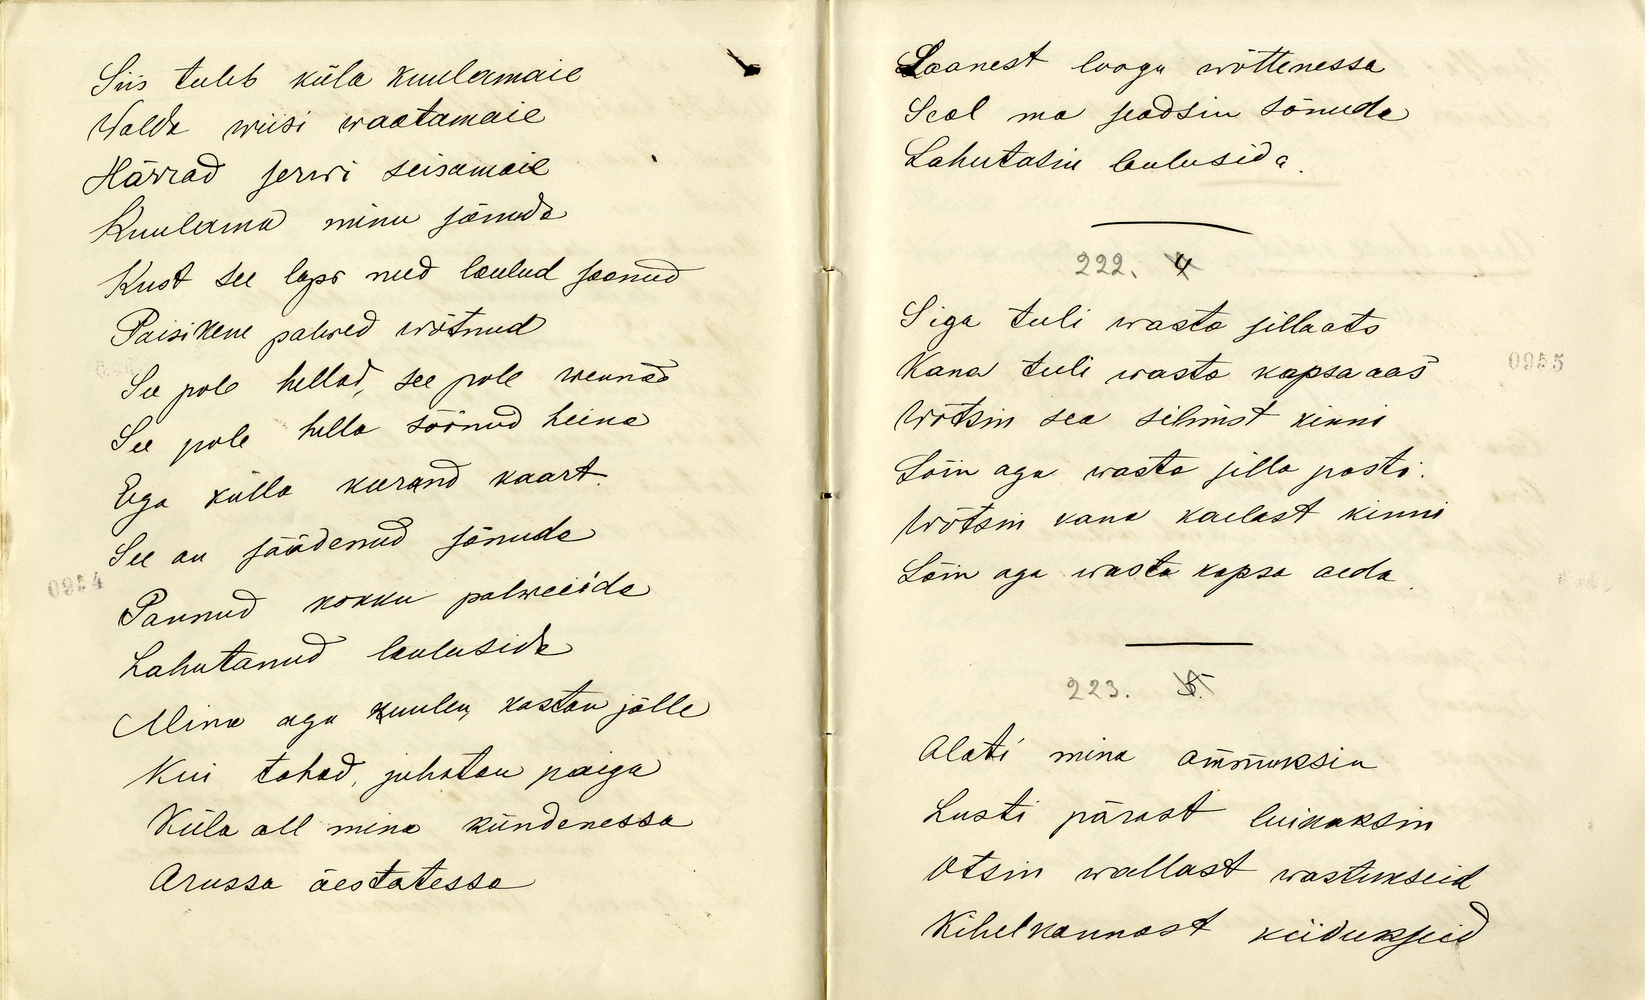 Siis tuleb küla kuulamaie
Walda wiisi waatamaie
Härrad serwi seisamaie
Kuulama minu sõnuda
Kust see laps need laulud saanud
Paisikene palwed wõtnud
See pole hellad, see pole wennad
See pole hella söönud heina
Ega külla keerand kaart.
See on säädenud sõnuda
0954
Pannud kokku palweeida
Lahutanud laulusida
Mina aga kuulen, kostan jälle
Kui tahad, juhatan paiga
Küla all mina kündenessa
Arussa äestatessa
Laanest loogu wõttenessa
Seal ma seadsin sõnuda
Lahutasin laulusida.
222. 4
Siga tuli wasto sillaots
Kana tuli wasto kapsa aas
0955
Wõtsin sea silmist kinni
Lõin aga wasta silla posti.
Wõtsin kana kaelast kinni
Lõin aga wasta kapsa aeda.
223. 5.
Alati mina ammuksin
Lusti pärast luinaksin
Otsin wallast wastukseid
Kihelkonnast kiidukseid